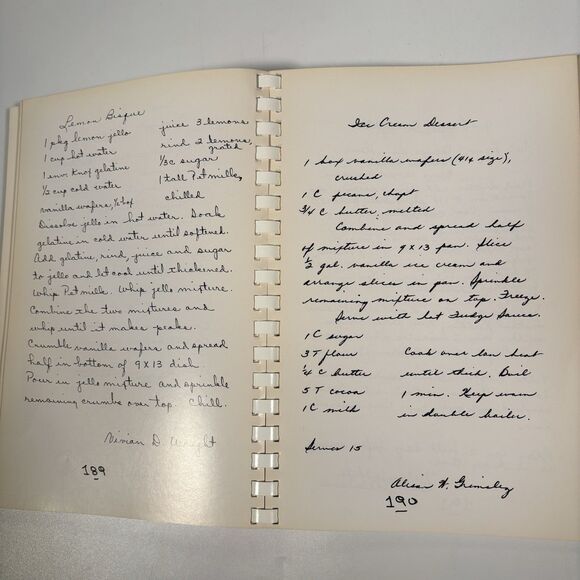 Lemon Bisque
1 pkg lemon jello
1 cup hot water
1 env. Knox gelatine
½ cup cold water
vanilla wafers, ½ box
juice 3 lemons
rind 2 lemons, grated
½ c sugar
1 tall Pet milk, chilled
Dissolve jello in hot water. Soak
gelatine in cold water until softened.
Add gelatine, rind, juice and sugar
to jello and let cool until thickened.
Whip Pet milk. Whip jello mixture.
Combine the two mixtures and
whip until it makes peaks.
Crumble vanilla wafers and spread
half in bottom of 9 x 13 dish.
Pour in jello mixture and sprinkle
remaining crumbs over top. Chill.
Vivian D. Wright
189
Ice Cream Dessert
1 box vanilla wafers (41¢ size),
crushed
1 C pecans, chopt
3/4 C butter, melted
Combine and spread half
of mixture in 9 x 13 pan. Slice
½ gal. vanilla ice cream and
arrange slices in pan. Sprinkle
remaining mixture on top. Freeze.
Serve with hot Fudge Sauce.
1 C sugar
3 T flour
¼ C butter
5 T cocoa
1 C milk
Cook over low heat
until thick. Boil
1 min. Keep warm
in double boiler.
Serves 15
W. Grimsley
190